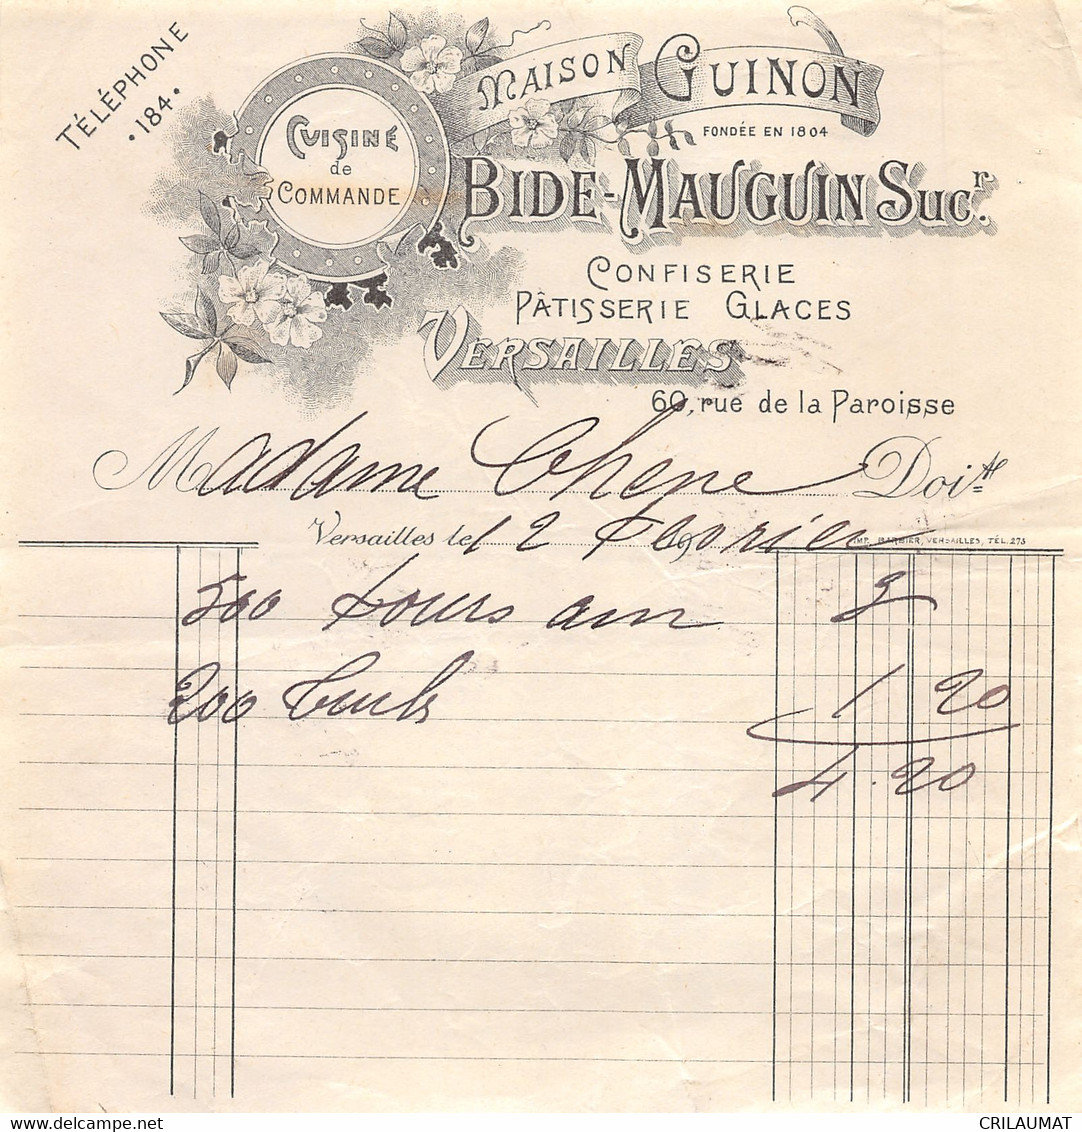 TÉLÉPHONE
•184•
MAISON GUINON
FONDÉE EN 1804
CUISINE
de
COMMANDE
BIDE-MAUGUIN Sucr.
CONFISERIE
PÂTISSERIE GLACES
VERSAILLES
60, rue de la Paroisse
Madame Doit
Versailles le 12 fevrier
IMP. BARBIER, VERSAILLES, TÉL. 273
500 fours am 3
200 1 20
4.20
www.delcampe.net
CRILAUMAT